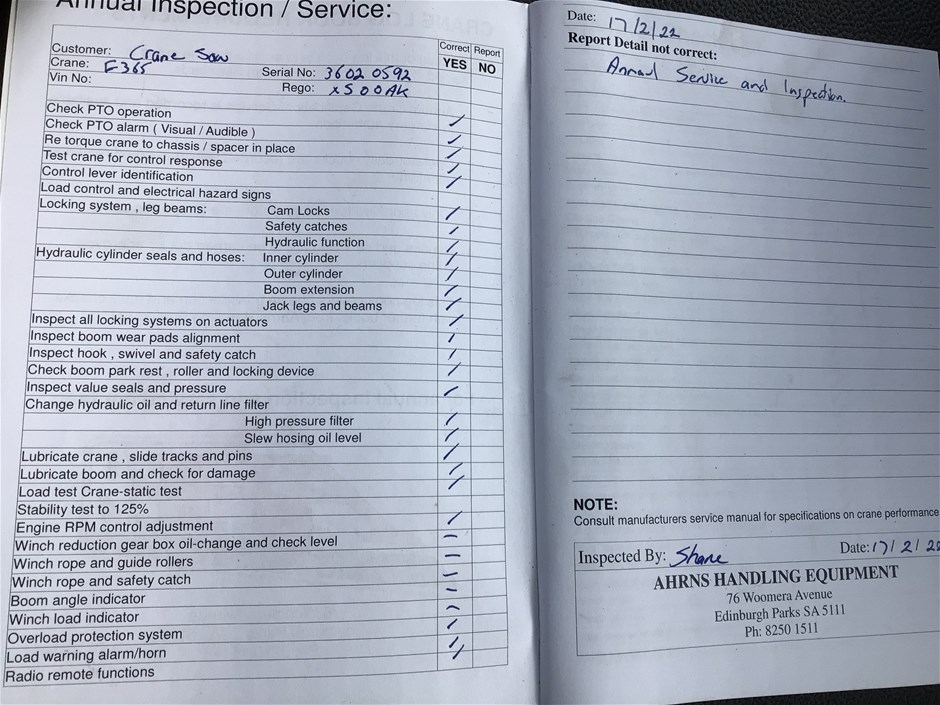 Annual Inspection / Service:
Correct Report
Customer: Crane Sow YES NO
Crane: F365 Serial No: 3602 0592
Vin No: Rego: XS00AK
Check PTO operation
Check PTO alarm ( Visual / Audible )
Re torque crane to chassis / spacer in place
Test crane for control response
Control lever identification
Load control and electrical hazard signs
Locking system , leg beams: Cam Locks
Safety catches
Hydraulic function
Hydraulic cylinder seals and hoses: Inner cylinder
Outer cylinder
Boom extension
Jack legs and beams
Inspect all locking systems on actuators
Inspect boom wear pads alignment
Inspect hook , swivel and safety catch
Check boom park rest , roller and locking device
Inspect value seals and pressure
Change hydraulic oil and return line filter
High pressure filter
Slew hosing oil level
Lubricate crane , slide tracks and pins
Lubricate boom and check for damage
Load test Crane-static test
Stability test to 125%
Engine RPM control adjustment
Winch reduction gear box oil-change and check level
Winch rope and guide rollers
Winch rope and safety catch
Boom angle indicator
Winch load indicator
Overload protection system
Load warning alarm/horn
Radio remote functions
Date: 17/2/22
Report Detail not correct:
Annual Service and Inspection.
NOTE:
Consult manufacturers service manual for specifications on crane performance
Inspected By: Shane Date: 17/2/22
AHRNS HANDLING EQUIPMENT
76 Woomera Avenue
Edinburgh Parks SA 5111
Ph: 8250 1511